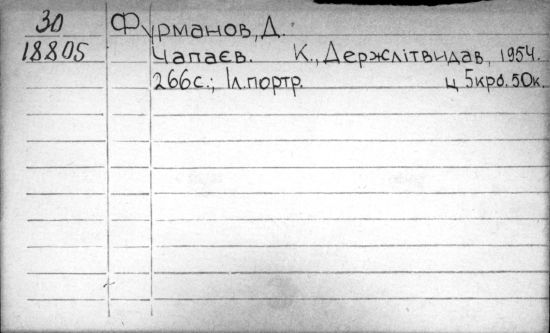 30
18805
Фурманов, Д.
Чапаєв. К., Держлітвидав, 1954.
266с.; Іл.портр. ц 5крб. 50к.